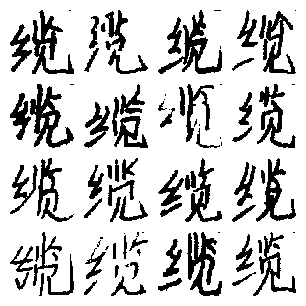 缆缆缆缆
缆缆缆缆
缆缆缆缆
缆缆缆缆